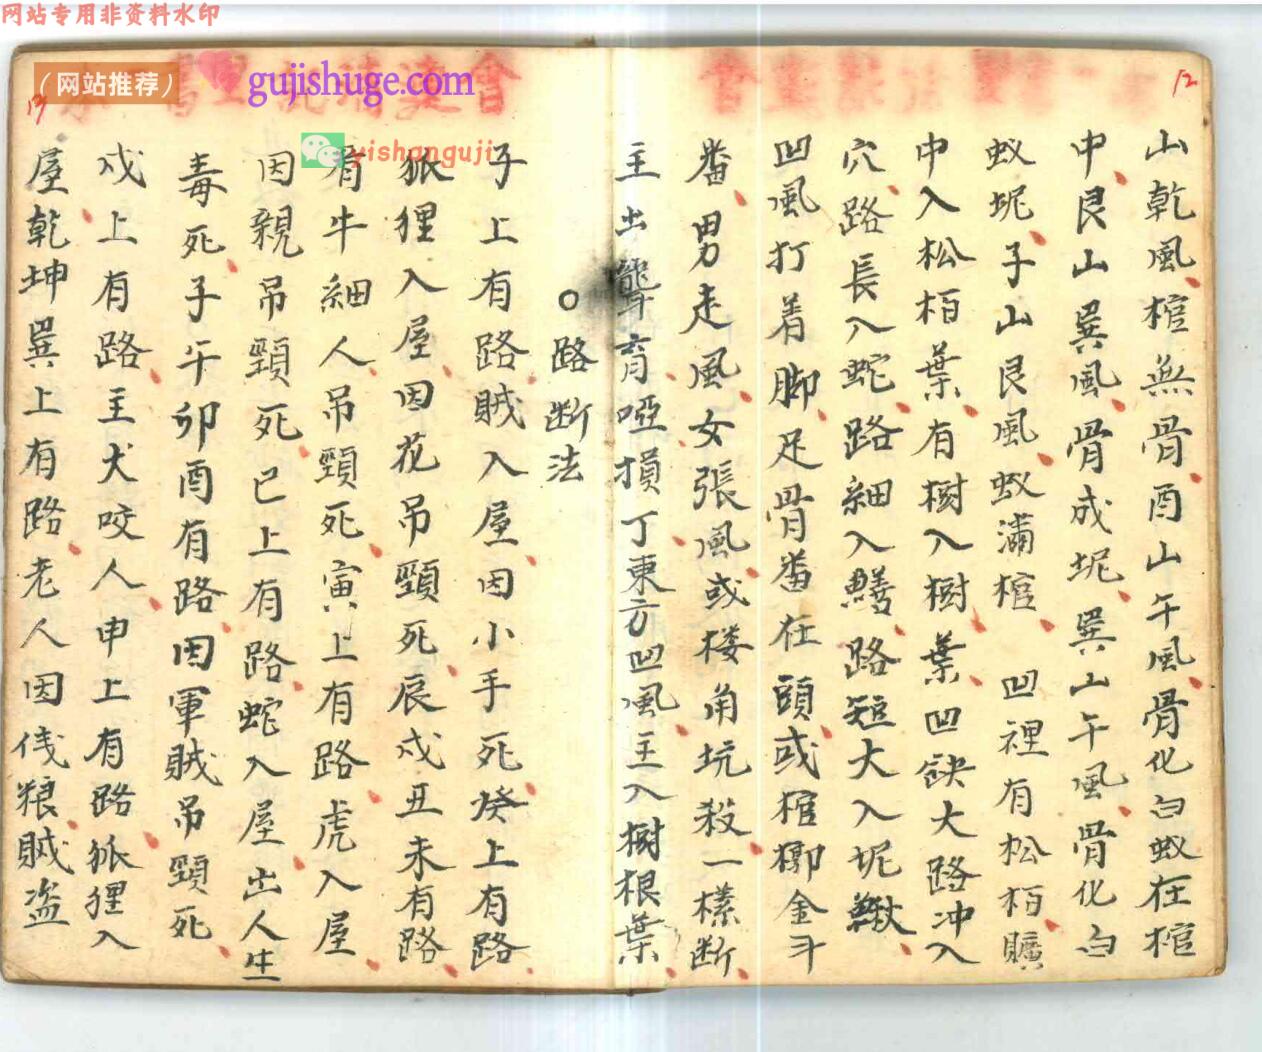 网站专用非资料水印
（网站推荐）
gujishuge.com
yishanguji
12
山乾風棺無骨酉山午風骨化白蚁在棺
中艮山巽風骨成坭巽山午風骨化白
蚁坭子山艮風蚁滿棺 凹裡有松栢曠
中入松栢葉有樹入樹葉凹缺大路冲入
穴路長入蛇路細入鱔路短大入坭鰍
凹風打着脚足骨畨在頭或棺槨金斗
畨男走風女張風或楼角坑殺一樣断
主出聾育啞損丁東方凹風主入樹根葉
○路断法
子上有路賊入屋因小手死癸上有路
狐狸入屋因花吊頸死辰戍丑未有路
看牛細人吊頸死寅上有路虎入屋
因親吊頸死巳上有路蛇入屋出人生
毒死子午卯酉有路因軍賊吊頸死
戍上有路主犬咬人申上有路狐狸入
屋乾坤巽上有路老人因伐粮賊盗